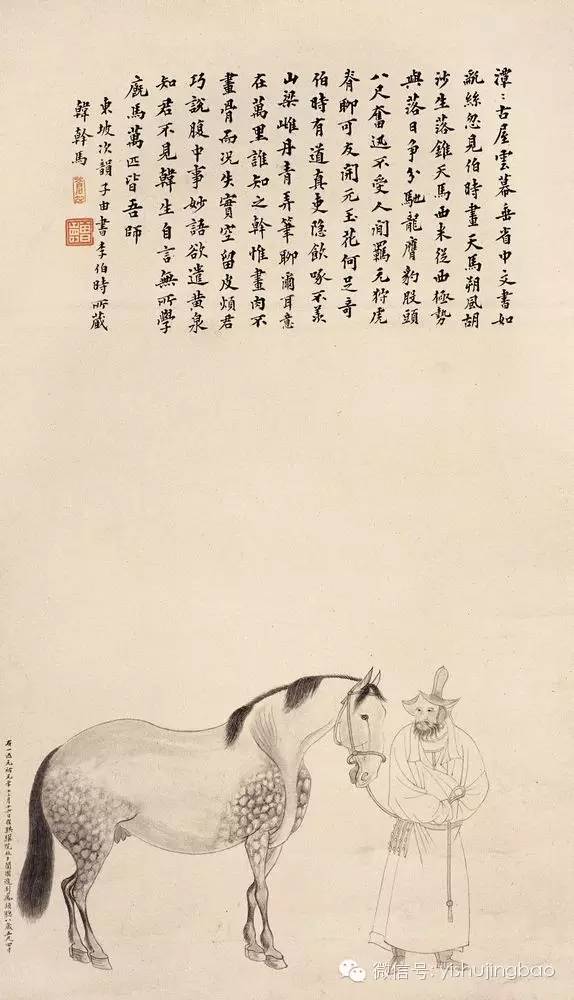 潭〻古屋雲幕垂省中文書如
亂絲忽見伯時畫天馬朔風胡
沙生落錐天馬西来從西極勢
與落日争分馳龍膺豹股頭
八尺奮迅不受人間羈元狩虎
脊聊可友開元玉花何足奇
伯時有道真吏隱飲啄不羨
山梁雌丹青弄筆聊爾耳意
在萬里誰知之幹惟畫肉不
畫骨而況失實空留皮煩君
巧說腹中事妙語欲遣黄泉
知君不見韓生自言無所學
廐馬萬匹皆吾師
東坡次韻子由書李伯時所藏
韓幹馬
右一匹元祐元年十二月十六日左騏驥院收于闐國進到鳳頭驄八歲五尺四寸
微信号: yishujingbao